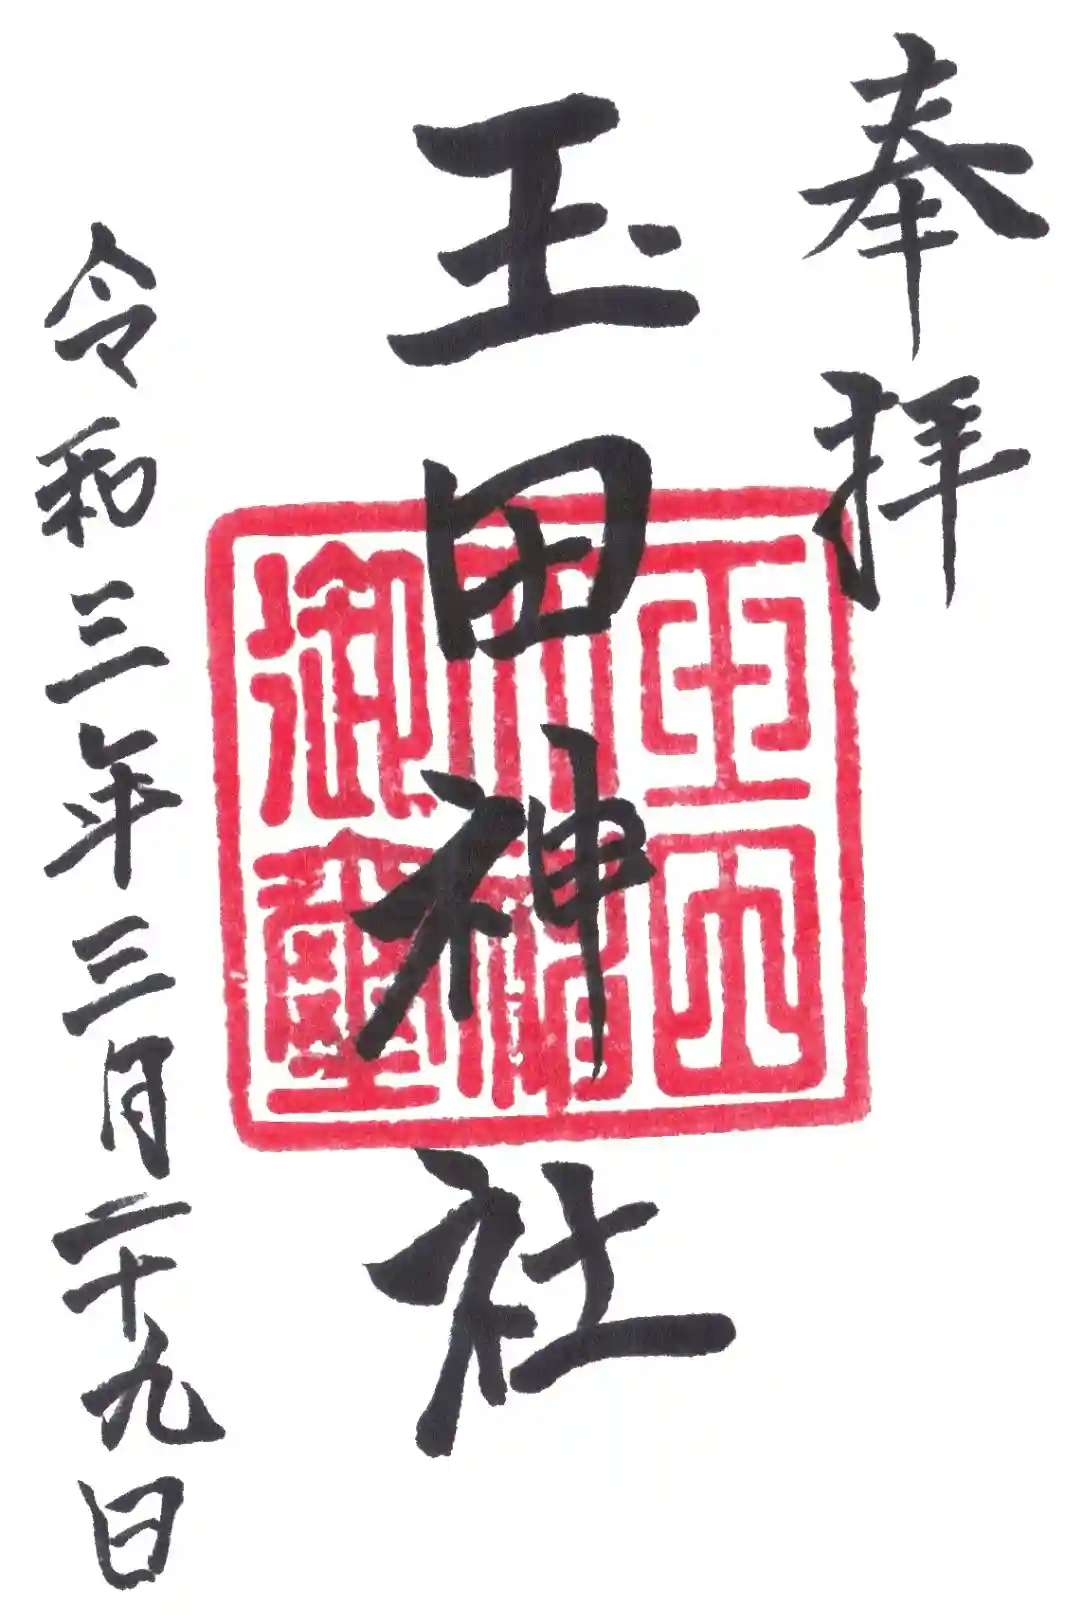 奉拝
玉田神社
御璽
令和三年三月二十九日